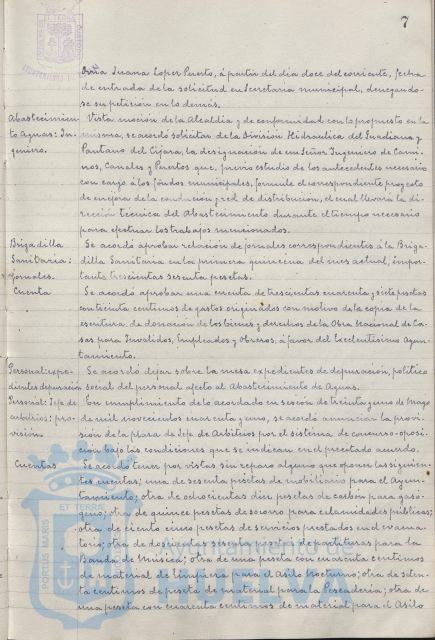 7
Doña Juana Lopez Puerto, á partir del día doce del corriente, fecha
de entrada de la solicitud en Secretaría municipal, denegando-
se su petición en lo demás.
Abastecimien- Vista moción de la Alcaldía y de conformidad con lo propuesto en la
to Aguas: In- misma, se acordó solicitar de la División Hidraulica del Guadiana y
geniero. Pantano del Cijara, la designación de un Señor Ingeniero de Cami-
nos, Canales y Puertos que, previo estudio de los antecedentes necesario
con cargo á los fondos municipales, formule el correspondiente proyecto
de mejora de la conducción y red de distribución, el cual llevará la di-
rección técnica del Abastecimiento durante el tiempo necesario
para efectuar los trabajos mencionados.
Brigadilla Se acordó aprobar relación de jornales correspondientes á la Briga-
Sanitaria: dilla Sanitaria en la primera quincena del mes actual, impor-
Jornales. tante trescientas sesenta pesetas.
Cuenta Se acordó aprobar una cuenta de trescientas cuarenta y siete pesetas
con treinta centimos de gastos originados con motivo de la copia de la
escritura de donación de los bienes y derechos de la Obra Nacional de Ca-
sas para Invalidos, Empleados y Obreros, á favor del Excelentísimo Ayun-
tamiento.
Personal: expe- Se acordó dejar sobre la mesa expedientes de depuración, político
dientes depuración social del personal afecto al Abastecimiento de Aguas.
Personal: Jefe de En cumplimiento de lo acordado en sesión de treinta y uno de Mayo
arbitrios: pro- de mil novecientos cuarenta y uno, se acordó anunciar la provi-
visión. sión de la plaza de Jefe de Arbitrios por el sistema de concurso-oposi-
ción bajo las condiciones que se indican en el precitado acuerdo.
Cuentas Se acordó tener por vistas sin reparo alguno que oponer las siguien-
tes cuentas; una de sesenta pesetas de mobiliario para el Ayun-
tamiento; otra de ochocientas diez pesetas de carbón para gaso-
geno; otra de quince pesetas de socorro para calamidades públicas;
otra de ciento cinco pesetas de servicios prestados en el crema-
torio; otra de doscientas sesenta pesetas de partituras para la
Banda de Música; otra de una peseta con cuarenta centimos
de material de limpieza para el Asilo Nocturno; otra de seten-
ta centimos de peseta de material para la Pescadería; otra de
una peseta con cuarenta centimos de material para el Asilo
ET TERRA
PORTUS MARIS
Ayuntamiento de